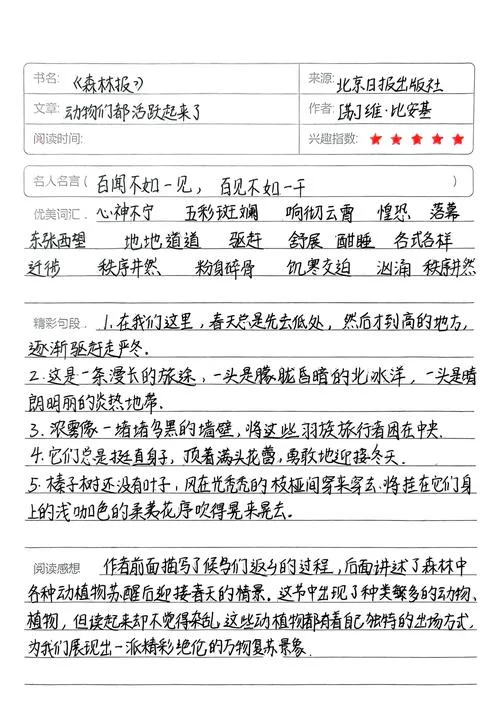 书名:《森林报》 来源: 北京日报出版社
文章: 动物们都活跃起来了 作者: [苏]维·比安基
阅读时间: 兴趣指数: ★★★★★
名人名言( 百闻不如一见, 百见不如一干 )
优美词汇. 心神不宁 五彩斑斓 响彻云霄 惶恐 落幕
东张西望 地地道道 驱赶 舒展 酣睡 各式各样
迁徙 秩序井然 粉身碎骨 饥寒交迫 汹涌 秩序井然
精彩句段. 1.在我们这里,春天总是先去低处,然后才到高的地方,
逐渐驱赶走严冬.
2.这是一条漫长的旅途,一头是朦胧昏暗的北冰洋,一头是晴
朗明丽的炎热地带.
3.浓雾像一堵堵乌黑的墙壁,将这些羽族旅行者困在中央.
4.它们总是挺直身子,顶着满头花蕾,勇敢地迎接冬天.
5.榛子树还没有叶子,风在光秃秃的枝桠间穿来穿去,将挂在它们身
上的浅咖色的柔荑花序吹得晃来晃去。
阅读感想 作者前面描写了候鸟们返乡的过程,后面讲述了森林中
各种动植物苏醒后迎接春天的情景。这节中出现了种类繁多的动物、
植物,但读起来却不觉得杂乱,这些动植物都有着自己独特的出场方式,
为我们展现出一派精彩绝伦的万物复苏景象.